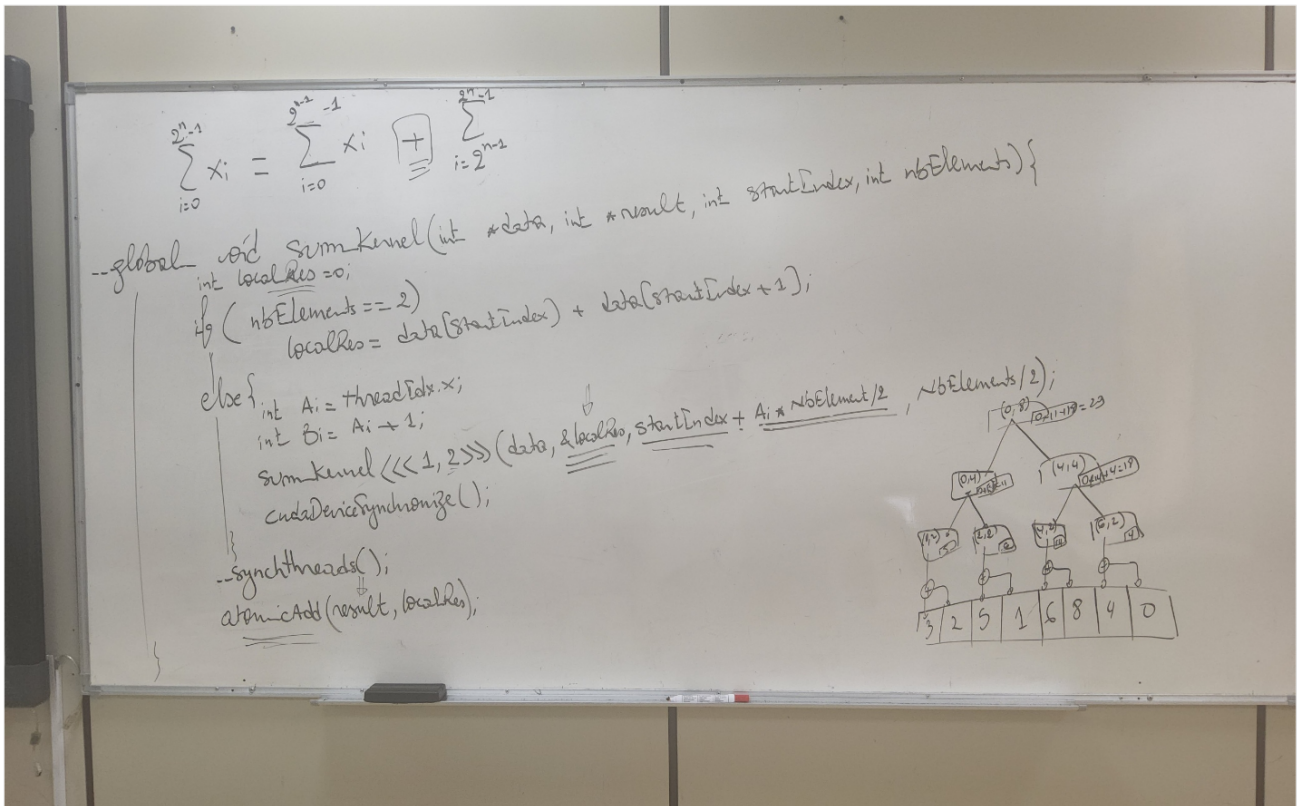 2ⁿ-1 2ⁿ⁻¹-1 2ⁿ-1
∑ xi = ∑ xi + ∑
i=0 i=0 i=2ⁿ⁻¹
__global__ void sumKernel(int *data, int *result, int startIndex, int nbElements){
int localRes =0;
if ( nbElements == 2)
localRes = data[startIndex) + data[startIndex + 1];
else{ int Ai = threadIdx.x;
int Bi = Ai + 1;
sumKernel <<<1, 2>>> (data, &localRes, startIndex + Ai * NbElement/2 , NbElements/2);
cudaDeviceSynchronize();
}
__synchthreads();
atomicAdd(result, localRes);
}
(0,8) =29
(0,4) (4,4)
(2,2) (6,2) 4
3 2 5 1 6 8 4 0